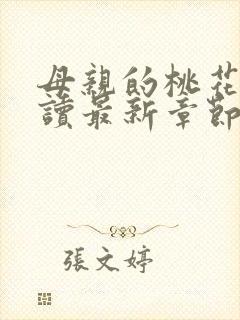 母親的桃花
讀最新章節
張文婷